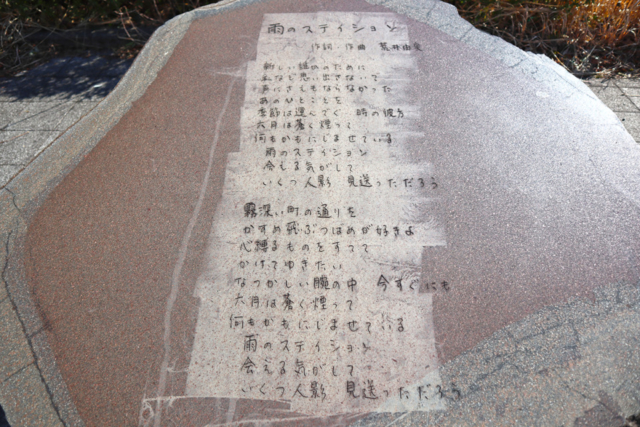 雨のステイション
作詞・作曲 荒井由実
新しい誰かのために
わたしなど思い出さないで
声にさえもならなかった
あのひとことを
季節は運んでく 時の彼方
六月は蒼く煙って
何もかもにじませている
雨のステイション
会える気がして
いくつ人影 見送っただろう
霧深い町の通りを
かすめ飛ぶつばめが好きよ
心縛るものをすてて
かけてゆきたい
なつかしい腕の中 今すぐにも
六月は蒼く煙って
何もかもにじませている
雨のステイション
会える気がして
いくつ人影 見送っただろう